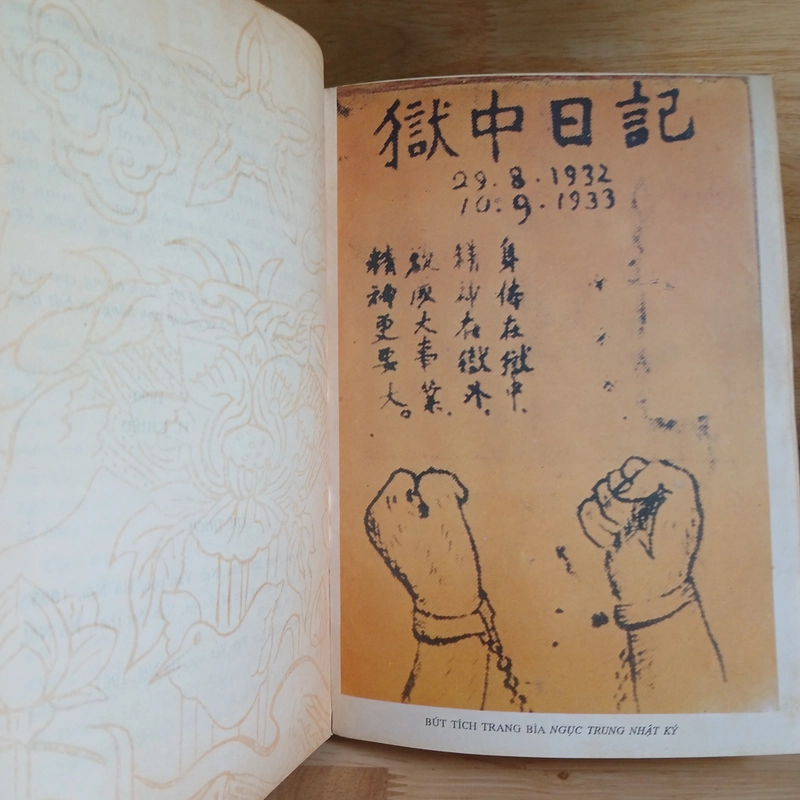 獄中日記
29.8.1932
10.9.1933
身体在獄中.
精神在獄外.
欲成大事業.
精神更要大。
BÚT TÍCH TRANG BÌA NGỤC TRUNG NHẬT KÝ